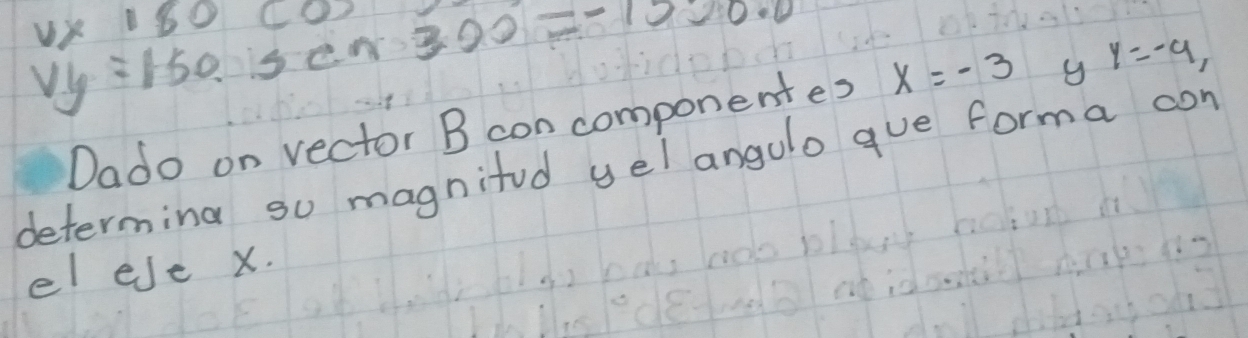 Vx 150 cos
Vy = 150. sen 300 =
Dado on vector B con componentes X = -3 y Y = -4,
determina su magnitud y el angulo que forma con
el eje X.